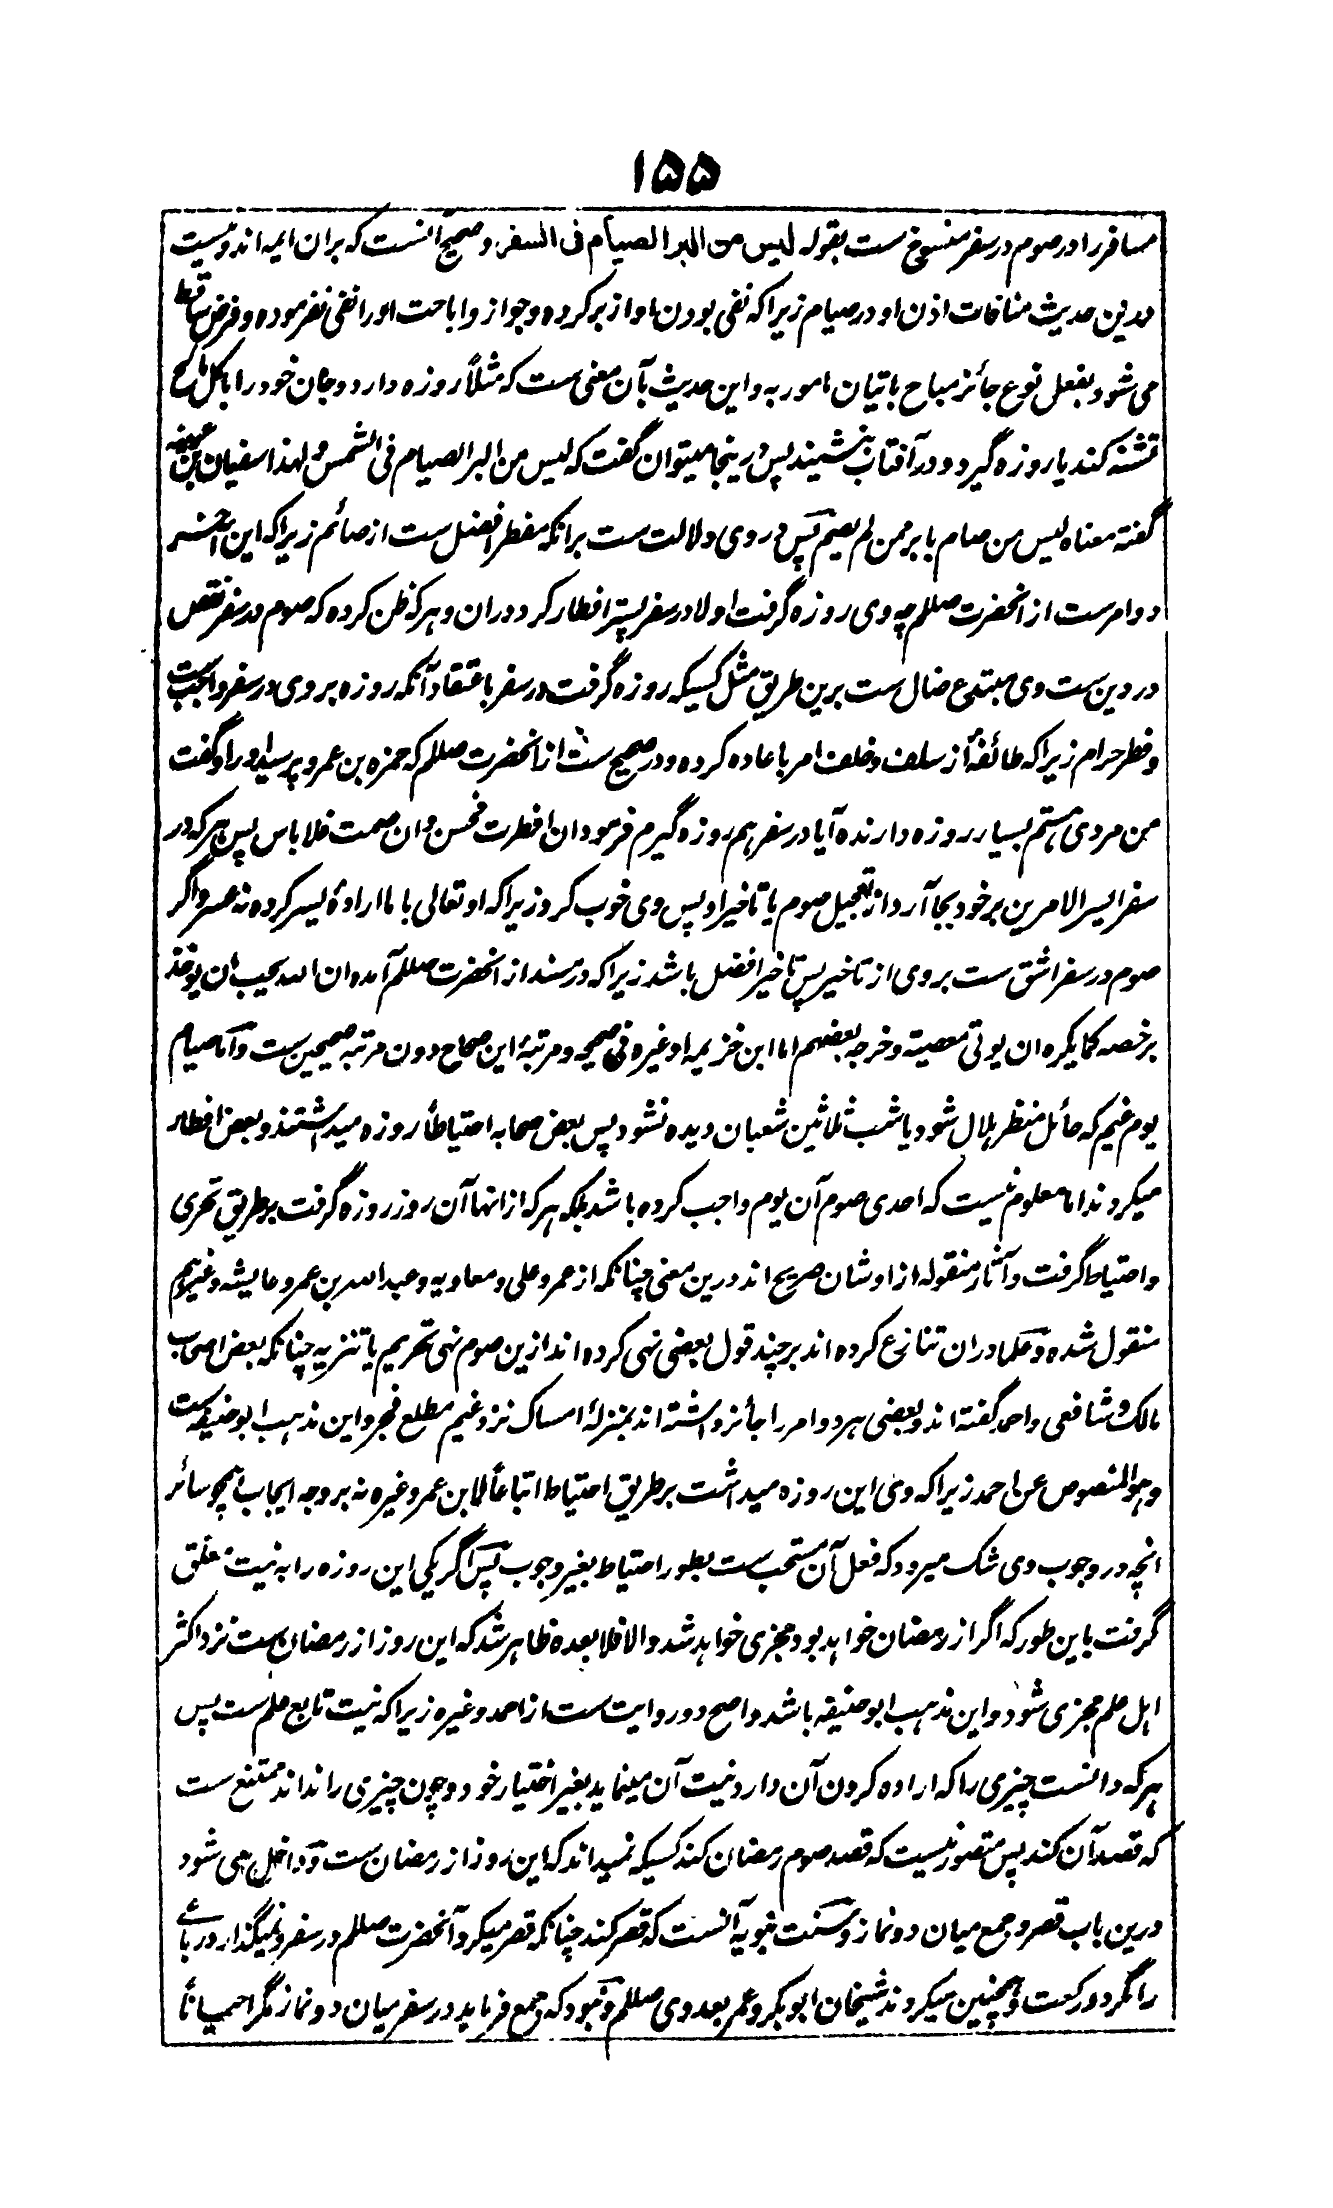 ۱۵۵
مسافر را در صوم در سفر منسوخ ست بقوله لیس من البر الصیام فی السفر و صحیح آنست که بران ایمه اند و نیست
درین حدیث منافات اذن او در صیام زیرا که نفی بودن او از بر کرده و جواز و اباحت او را نفی نفرموده و فرض ساقط
می شود بفعل نوع جائز مباح باتیان امور به و این حدیث بآن معنی ست که مثلاً روزه دارد و جان خود را
تشنه کند یا روزه گیرد و در آفتاب بنشیند پس درینجا میتوان گفت که لیس من البر الصیام فی الشمس و لهذا سفیان بن عیینه
گفته معناه لیس من صام بابر ممن لم یصم پس در وی دلالت ست برانکه مفطر افضل ست از صائم زیرا که این آخر
دو امرست از انحضرت صللم چه وی روزه گرفت اولا در سفر پستر افطار کرد دران و هر که ظن کرده که صوم در سفر نقص
در دین ست وی مبتدع ضال ست برین طریق مثل کسیکه روزه گرفت در سفر باعتقاد آنکه روزه بر وی در سفر واجب ست
و فطر حرام زیرا که طائفهٔ از سلف و خلف امر باعاده کرده و در صحیح ست از انحضرت صللم که حمزه بن عمرو پرسید او را و گفت
من مردی هستم بسیار روزه دارنده آیا در سفر هم روزه گیرم فرمود ان افطرت فحسن و ان صمت فلا باس پس هر که در
سفر ایسر الامرین بر خود بجا آرد از تعجیل صوم یا تاخیر او پس وی خوب کرد زیرا که او تعالی با ما ارادهٔ یسر کرده نه عسر و اگر
صوم در سفر اشق ست بر وی از تاخیر پس تاخیر افضل باشد زیرا که در مسند از انحضرت صللم آمده ان الله یحب ان یوخذ
برخصه کما یکره ان یوتی معصیته و خرجه بعضهم اما ابن خزیمه او غیره فی صحیحه و مرتبهٔ این صحاح دون مرتبه صحیحین ست و آما صیام
یوم غیم که حائل منظر هلال شود یا شب ثلاثین شعبان دیده نشود پس بعض صحابه احتیاطاً روزه میداشتند و بعض افطار
میکردند اما معلوم نیست که احدی صوم آن یوم واجب کرده باشد بلکه هر که از انها آن روز روزه گرفت بر طریق تحری
و احتیاط گرفت و آثار منقوله از اوشان صریح اند درین معنی چنانکه از عمر و علی و معاویه و عبدالله بن عمر و عایشه و غیرهم
منقول شده و علما دران تنازع کرده اند بر چند قول بعضی نهی کرده اند ازین صوم نهی تحریم یا تنزیه چنانکه بعض اصحاب
مالک و شافعی و احمد گفته اند و بعضی هر دو امر را جائز داشته اند بمنزلهٔ امساک نزد غیم مطلع فجر و این مذهب ابو حنیفه ست
و هو المنصوص عن احمد زیرا که وی این روزه میداشت بر طریق احتیاط اتباعاً لابن عمر و غیره نه بر وجه ایجاب همچو سائر
انچه در وجوب وی شک میرود که فعل آن مستحب ست بطور احتیاط بغیر وجوب پس اگر یکی این روزه را به نیت معلق
گرفت باین طور که اگر از رمضان خواهد بود مجزی خواهد شد والا فلا بعده ظاهر شد که این روز از رمضان ست نزد اکثر
اهل علم مجزی شود و این مذهب ابو حنیفه باشد و اصح دو روایت ست از احمد و غیره زیرا که نیت تابع علم ست پس
هر که دانست چیزی را که اراده کردن آن دارد نیت آن مینماید بغیر اختیار خود و چون چیزی را نداند ممتنع ست
که قصد آن کند پس متصور نیست که قصد صوم رمضان کند کسیکه نمیداند که این روز از رمضان ست و داخل می شود
درین باب قصر و جمع میان دو نماز و سنت نبویه آنست که قصر کند چنانکه قصر میکرد آنحضرت صللم در سفر و نمیگذارد رباعی
را مگر دو رکعت و همچنین میکردند شیخان ابوبکر و عمر بعد وی صللم و نبود که جمع فرماید در سفر میان دو نماز مگر احیاناً